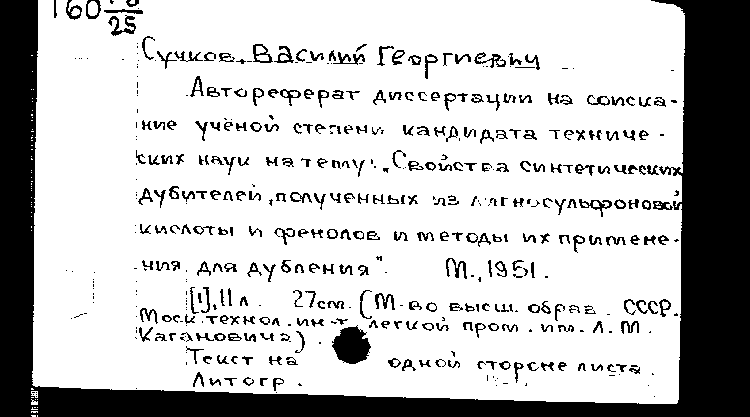 160 25
Сучков, Василий Георгиевич
Автореферат диссертации на соиска-
ние учёной степени кандидата техниче-
ских наук на тему: „Свойства синтетических
дубителей, полученных из лигносульфоновой
кислоты и фенолов и методы их примене-
ния для дубления".   М., 1951.
[1], 11 л.   27 см. (М-во высш. образ. СССР.
Моск. технол. ин-т легкой пром. им. Л. М.
Кагановича).
Текст на одной стороне листа.
Литогр.